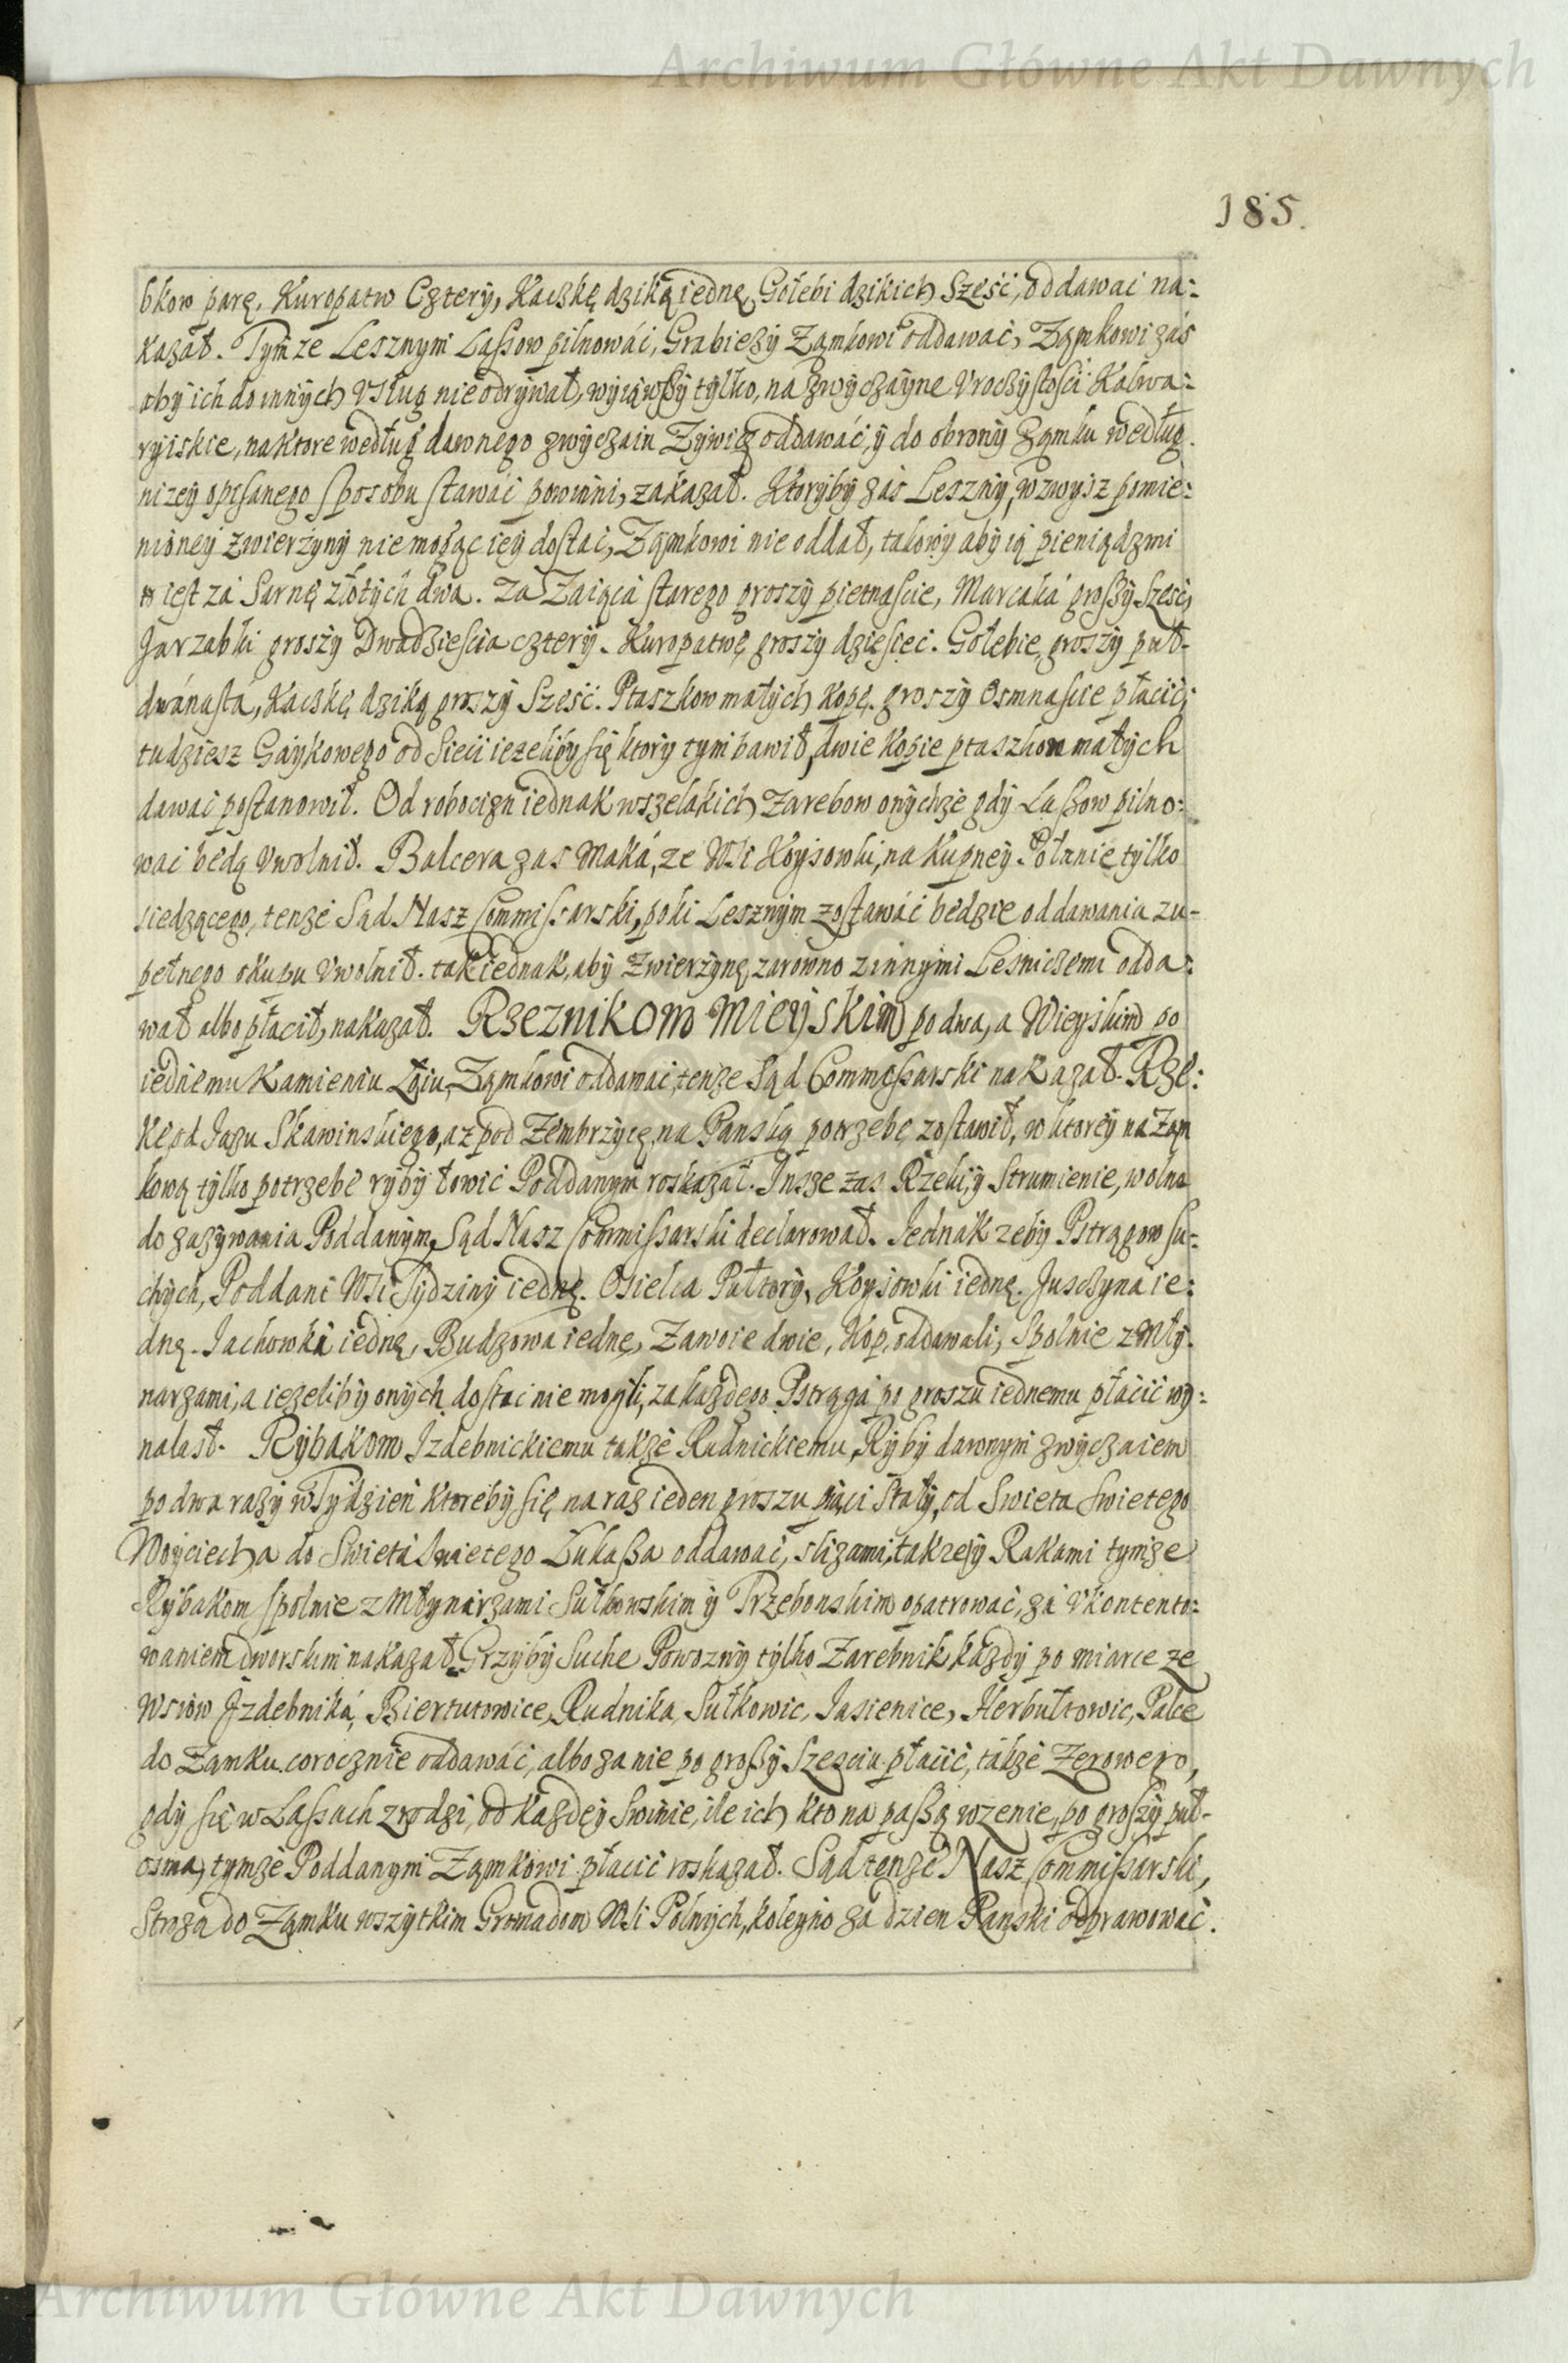 Archiwum Główne Akt Dawnych
185.
bkow parę, Kuropatw Cztery, Kaczkę dziką iednę, Gołebi dzikich Sześć, oddawać na:
kazał. Tymze Lesznym Lassow pilnować, Grabieży Zamkowi oddawać, Zamkowi zás
aby ich do innych Vsług nie odrywał, wyiąwszy tylko, na zwyczáyne Vroczystości Kalwa:
ryiskie, na ktore według dawnego zwyczaiu Zywicę oddawać, ÿ do obrony Zamku według
nizey opisanego sposobu stawáć powinni, zakazał. Ktoryby zás Leszny, wzwysz pomie:
nioney zwierzyny nie mogąc iey dostać, Zamkowi nie oddał, takowy aby ią pieniądzmi
to iest zá Sarnę złotych dwa. Za Zaiąca starego groszy pietnascie, Marcaká groszy Sześć,
Jarzabki groszy Dwadziescia cztery. Kuropatwę groszy dziesięć. Gołebie groszy puł-
dwánasta, Kaczkę dziką groszy Sześć. Ptaszkow małych kopę groszy Osmnascie płacić,
tudziesz Gáykowego od Sieci iezeliby się ktory tym bawił, dwie kopie ptaszkow małych
dawać postanowił. Od robocizn iednak wszelakich Zarebow onychze gdy Lassow pilno:
wać będą Vwolnił. Balcera zas Maká, ze Wsi Koysowki, na Kupney Polanie tylko
siedzącego, tenze Sąd Nasz Commissarski, poki Lesznym zostawáć będzie oddawania zu-
pełnego okupu Vwolnił. tak iednak, aby Zwierzynę zarowno z innymi Lesniczemi odda:
wał albo płacił, nakazał. Rzeznikom Mieyskim po dwa, a Wieyskim po
iednemu Kamieniu Łoiu, Zamkowi oddawać, tenze Sąd Commissarski nakazał. Rze:
kę od Jazu Skawinskiego, az pod Zembrzycę na Panską potrzebę zostawił, w ktorey na Zam
kową tylko potrzebę ryby łowić Poddanym roskazał. Insze zas Rzeki, y Strumienie, wolne
do zazywania Poddanym, Sąd Nasz Commissarski declarował. Jednak zeby Pstrągow su:
chych, Poddani Wsi Sydziny iednę. Osielca Pułtory, Koysowki iednę. Juszczyna ie:
dnę. Jachowka iednę, Budzowa iednę, Zawoie dwie, Kop, oddawali, Spolnie z Mły:
narzami, a iezeliby onych dostać nie mogli, za kazdego Pstrąga po groszu iednemu płacić wy:
nalasł. Rybakom Izdebnickiemu takze Rudnickiemu, Ryby dawnym zwyczaiem
po dwa razy w Tydzień ktoreby się na raz ieden groszy piąci stały, od Swieta Swietego
Woyciecha do Swieta Swietego Łukasza oddawać, slizami, takze y Rakami tymze
Rybakom spolnie z Młynarzami Sułkowskim y Trzebonskim opatrować, zá Vkontento:
waniem dworskim nakazał. Grzyby Suche Powozny tylko Zarebnik kázdy po miarce ze
Wsiow Izdebniká, Biertutowice, Rudnika, Sułkowic, Jasienice, Herbułtowic, Palce
do Zamku corocznie oddawáć, albo za nie po groszy Szesciu płacić, tákze Zerowego,
gdy się w Lassach zrodzi, od Kazdey Swinie, ile ich kto na paszą wzenie, po groszy puł-
osma, tymze Poddanym Zamkowi płacić roskazał. Sąd tenze Nasz Commissarski,
Straza do Zamku wszytkim Gromadom Wsi Polnych, koleyno za dzien Panski odprawować.
Archiwum Główne Akt Dawnych